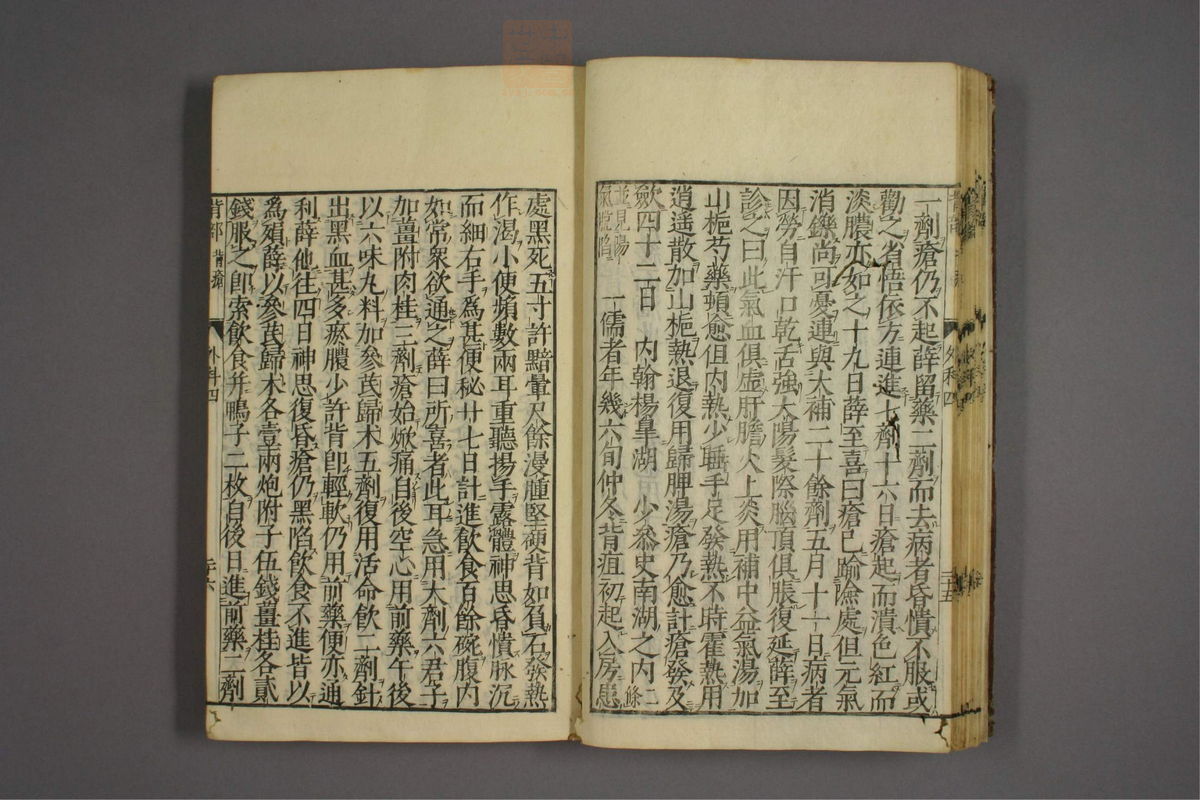 一劑瘡仍不起薛留藥二劑而去病者昏憒不服或
勸之省悟依方連進七劑十六日瘡起而潰色紅而
淡膿亦如之十九日薛至喜曰瘡已踰險處但元氣
消鑠尚可憂連與大補二十餘劑五月十一日病者
因勞自汗口乾舌強太陽髮際腦頂俱脹復延薛至
診之曰此氣血俱虛肝膽火上炎用補中益氣湯加
山梔芍藥頓愈但內熱少睡手足發熱不時霍熱用
逍遥散加山梔熱退復用歸脾湯瘡乃愈計瘡發及
斂四十二日 內翰楊皐湖 少叅史南湖之內二條
並見陽氣脫陷 一儒者年幾六旬仲冬背疽初起入房患
處黑死五寸許黯暈尺餘漫腫堅硬背如負石發熱
作渴小便頻數兩耳重聽揚手露體神思昏憒脉沉
而細右手爲甚便秘廿七日計進飲食百餘碗腹內
如常衆欲通之薛曰所喜者此耳急用大劑六君子
加薑附肉桂三劑瘡始焮痛自後空心用前藥午後
以六味丸料加參茋歸木五劑復用活命飲二劑針
出黑血甚多瘀膿少許背卽輕軟仍用前藥便亦通
利薛他往四日神思復昏瘡仍黑陷飲食不進皆以
爲殞薛以參茋歸木各壹兩炮附子伍錢薑桂各貳
錢服之卽索飲食并鴨子二枚自後日進前藥二劑
背部 背瘡
外科四